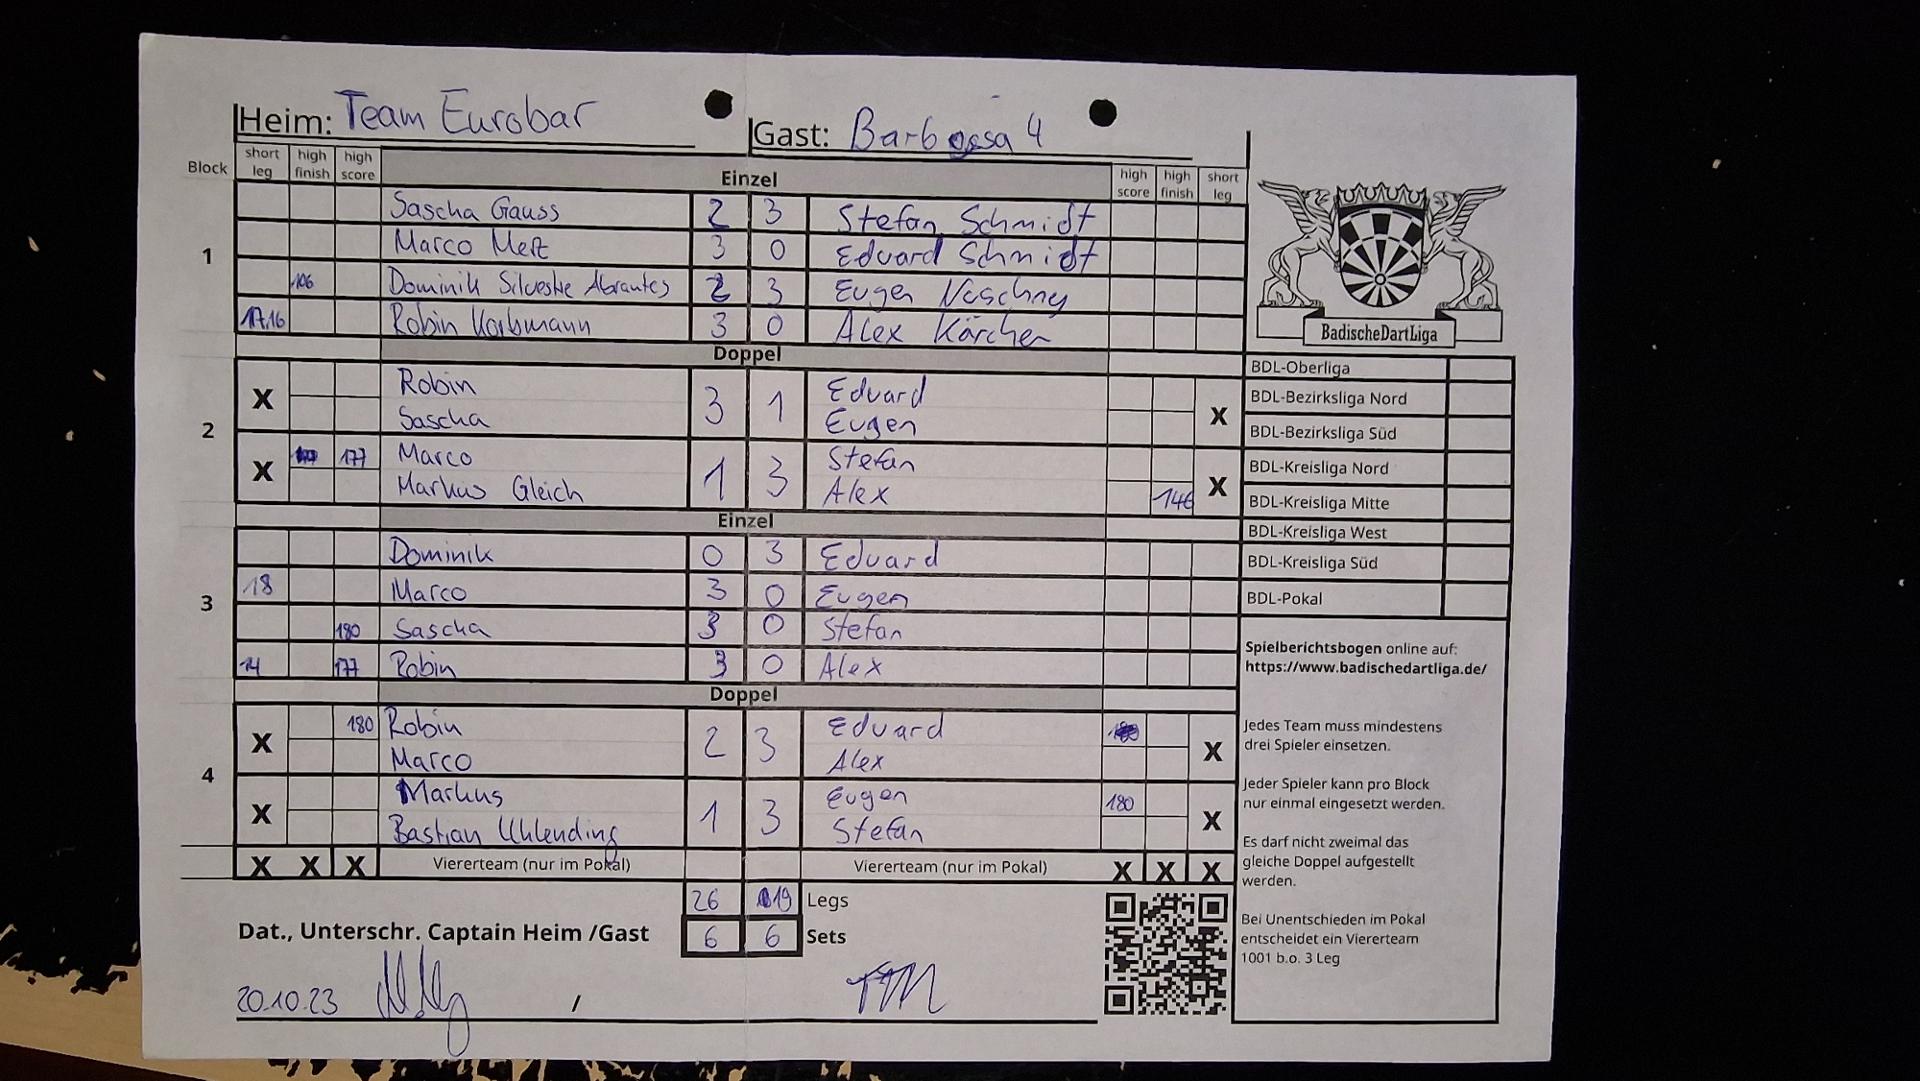 Heim: Team Eurobar
Gast: Barbossa 4
Block short leg high finish high score Einzel high score high finish short leg
1
Sascha Gauss 2 3 Stefan Schmidt
Marco Merz 3 0 Eduard Schmidt
106 Dominik Silvestre Abrantes 2 3 Eugen
17,16 Robin 3 0 Alex Kärcher
Doppel
2
X Robin 3 1 Eduard X
Sascha Eugen
X 177 Marco 1 3 Stefan X
Markus Gleich Alex 146
Einzel
3
Dominik 0 3 Eduard
18 Marco 3 0 Eugen
180 Sascha 3 0 Stefan
14 177 Robin 3 0 Alex
Doppel
4
X 180 Robin 2 3 Eduard X
Marco Alex
X Markus 1 3 Eugen 180 X
Bastian Uhlending Stefan
X X X Viererteam (nur im Pokal) Viererteam (nur im Pokal) X X X
26 19 Legs
Dat., Unterschr. Captain Heim /Gast 6 6 Sets
20.10.23 /
BadischeDartLiga
BDL-Oberliga
BDL-Bezirksliga Nord
BDL-Bezirksliga Süd
BDL-Kreisliga Nord
BDL-Kreisliga Mitte
BDL-Kreisliga West
BDL-Kreisliga Süd
BDL-Pokal
Spielberichtsbogen online auf:
https://www.badischedartliga.de/
Jedes Team muss mindestens
drei Spieler einsetzen.
Jeder Spieler kann pro Block
nur einmal eingesetzt werden.
Es darf nicht zweimal das
gleiche Doppel aufgestellt
werden.
Bei Unentschieden im Pokal
entscheidet ein Viererteam
1001 b.o. 3 Leg